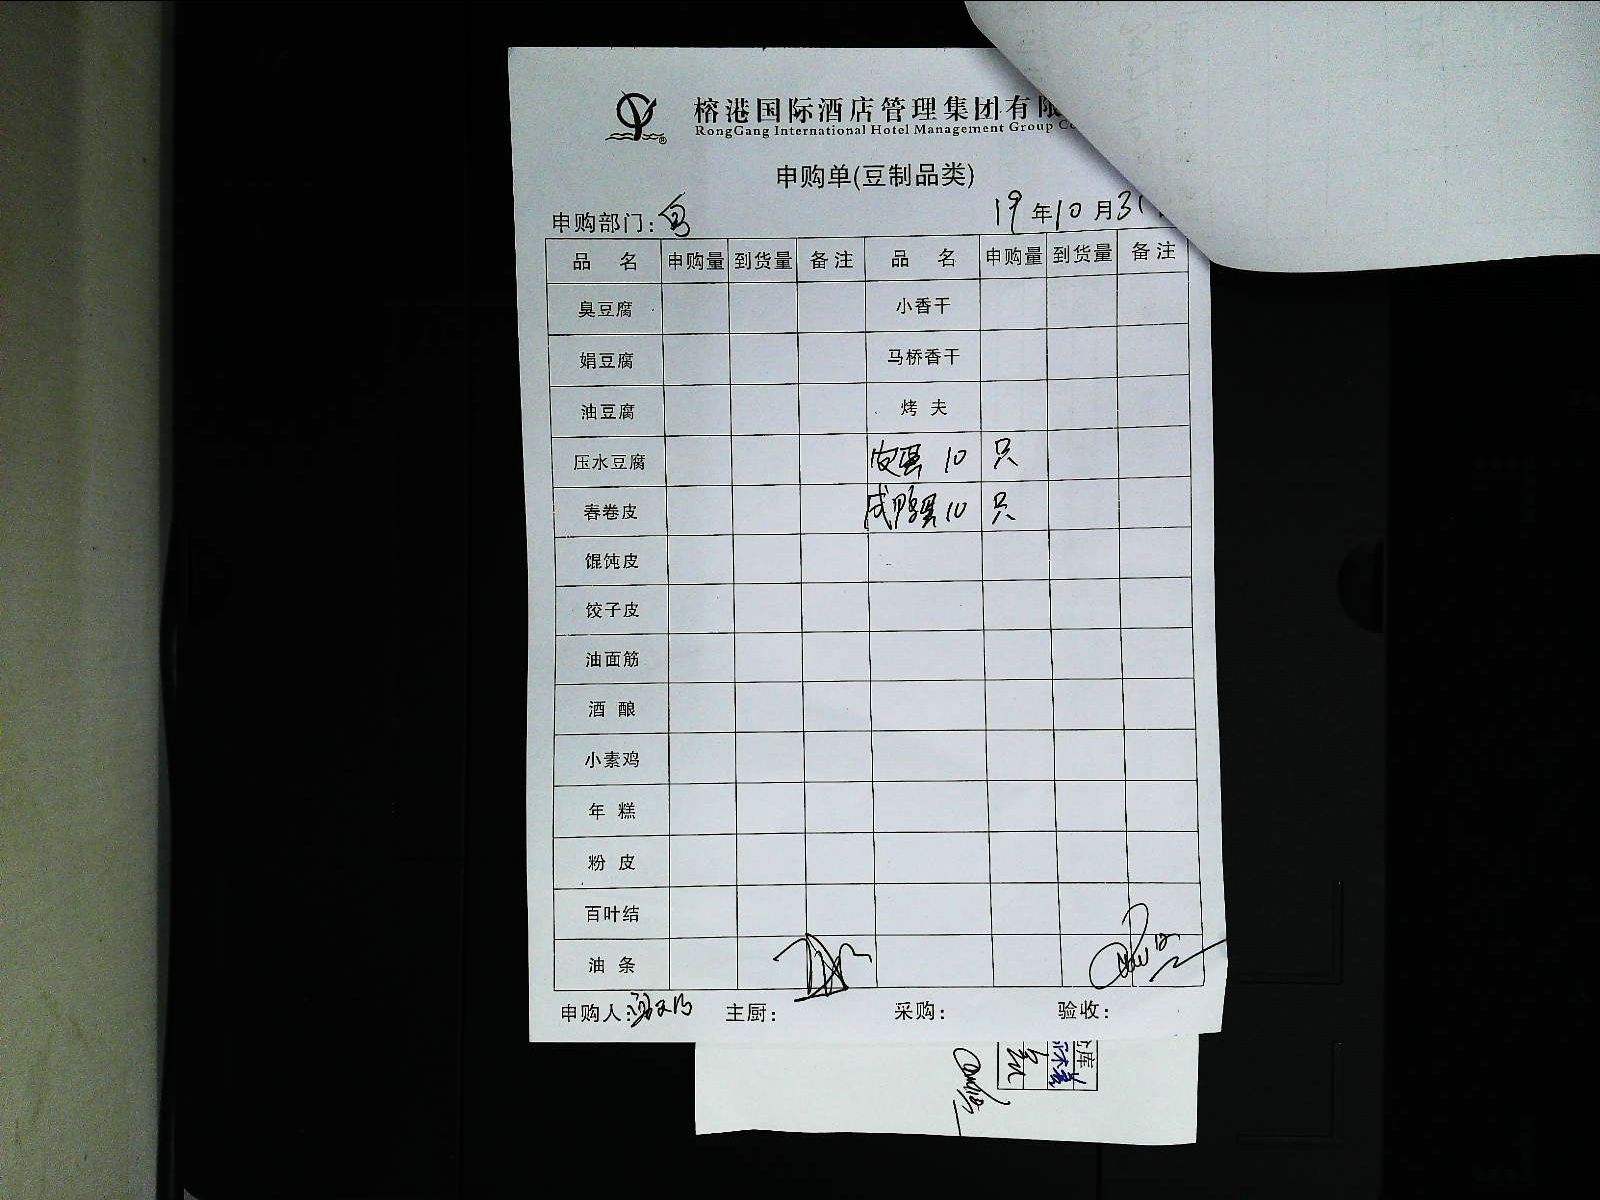 榕港国际酒店管理集团有限
RongGang International Hotel Management Group Co
申购单(豆制品类)
申购部门:
19 年 10 月 31
品 名 申购量 到货量 备注 品 名 申购量 到货量 备注
臭豆腐 小香干
娟豆腐 马桥香干
油豆腐 烤 夫
压水豆腐 皮蛋 10 只
春卷皮 咸鸭蛋 10 只
馄饨皮
饺子皮
油面筋
酒 酿
小素鸡
年 糕
粉 皮
百叶结
油 条
申购人: 主厨: 采购: 验收:
库